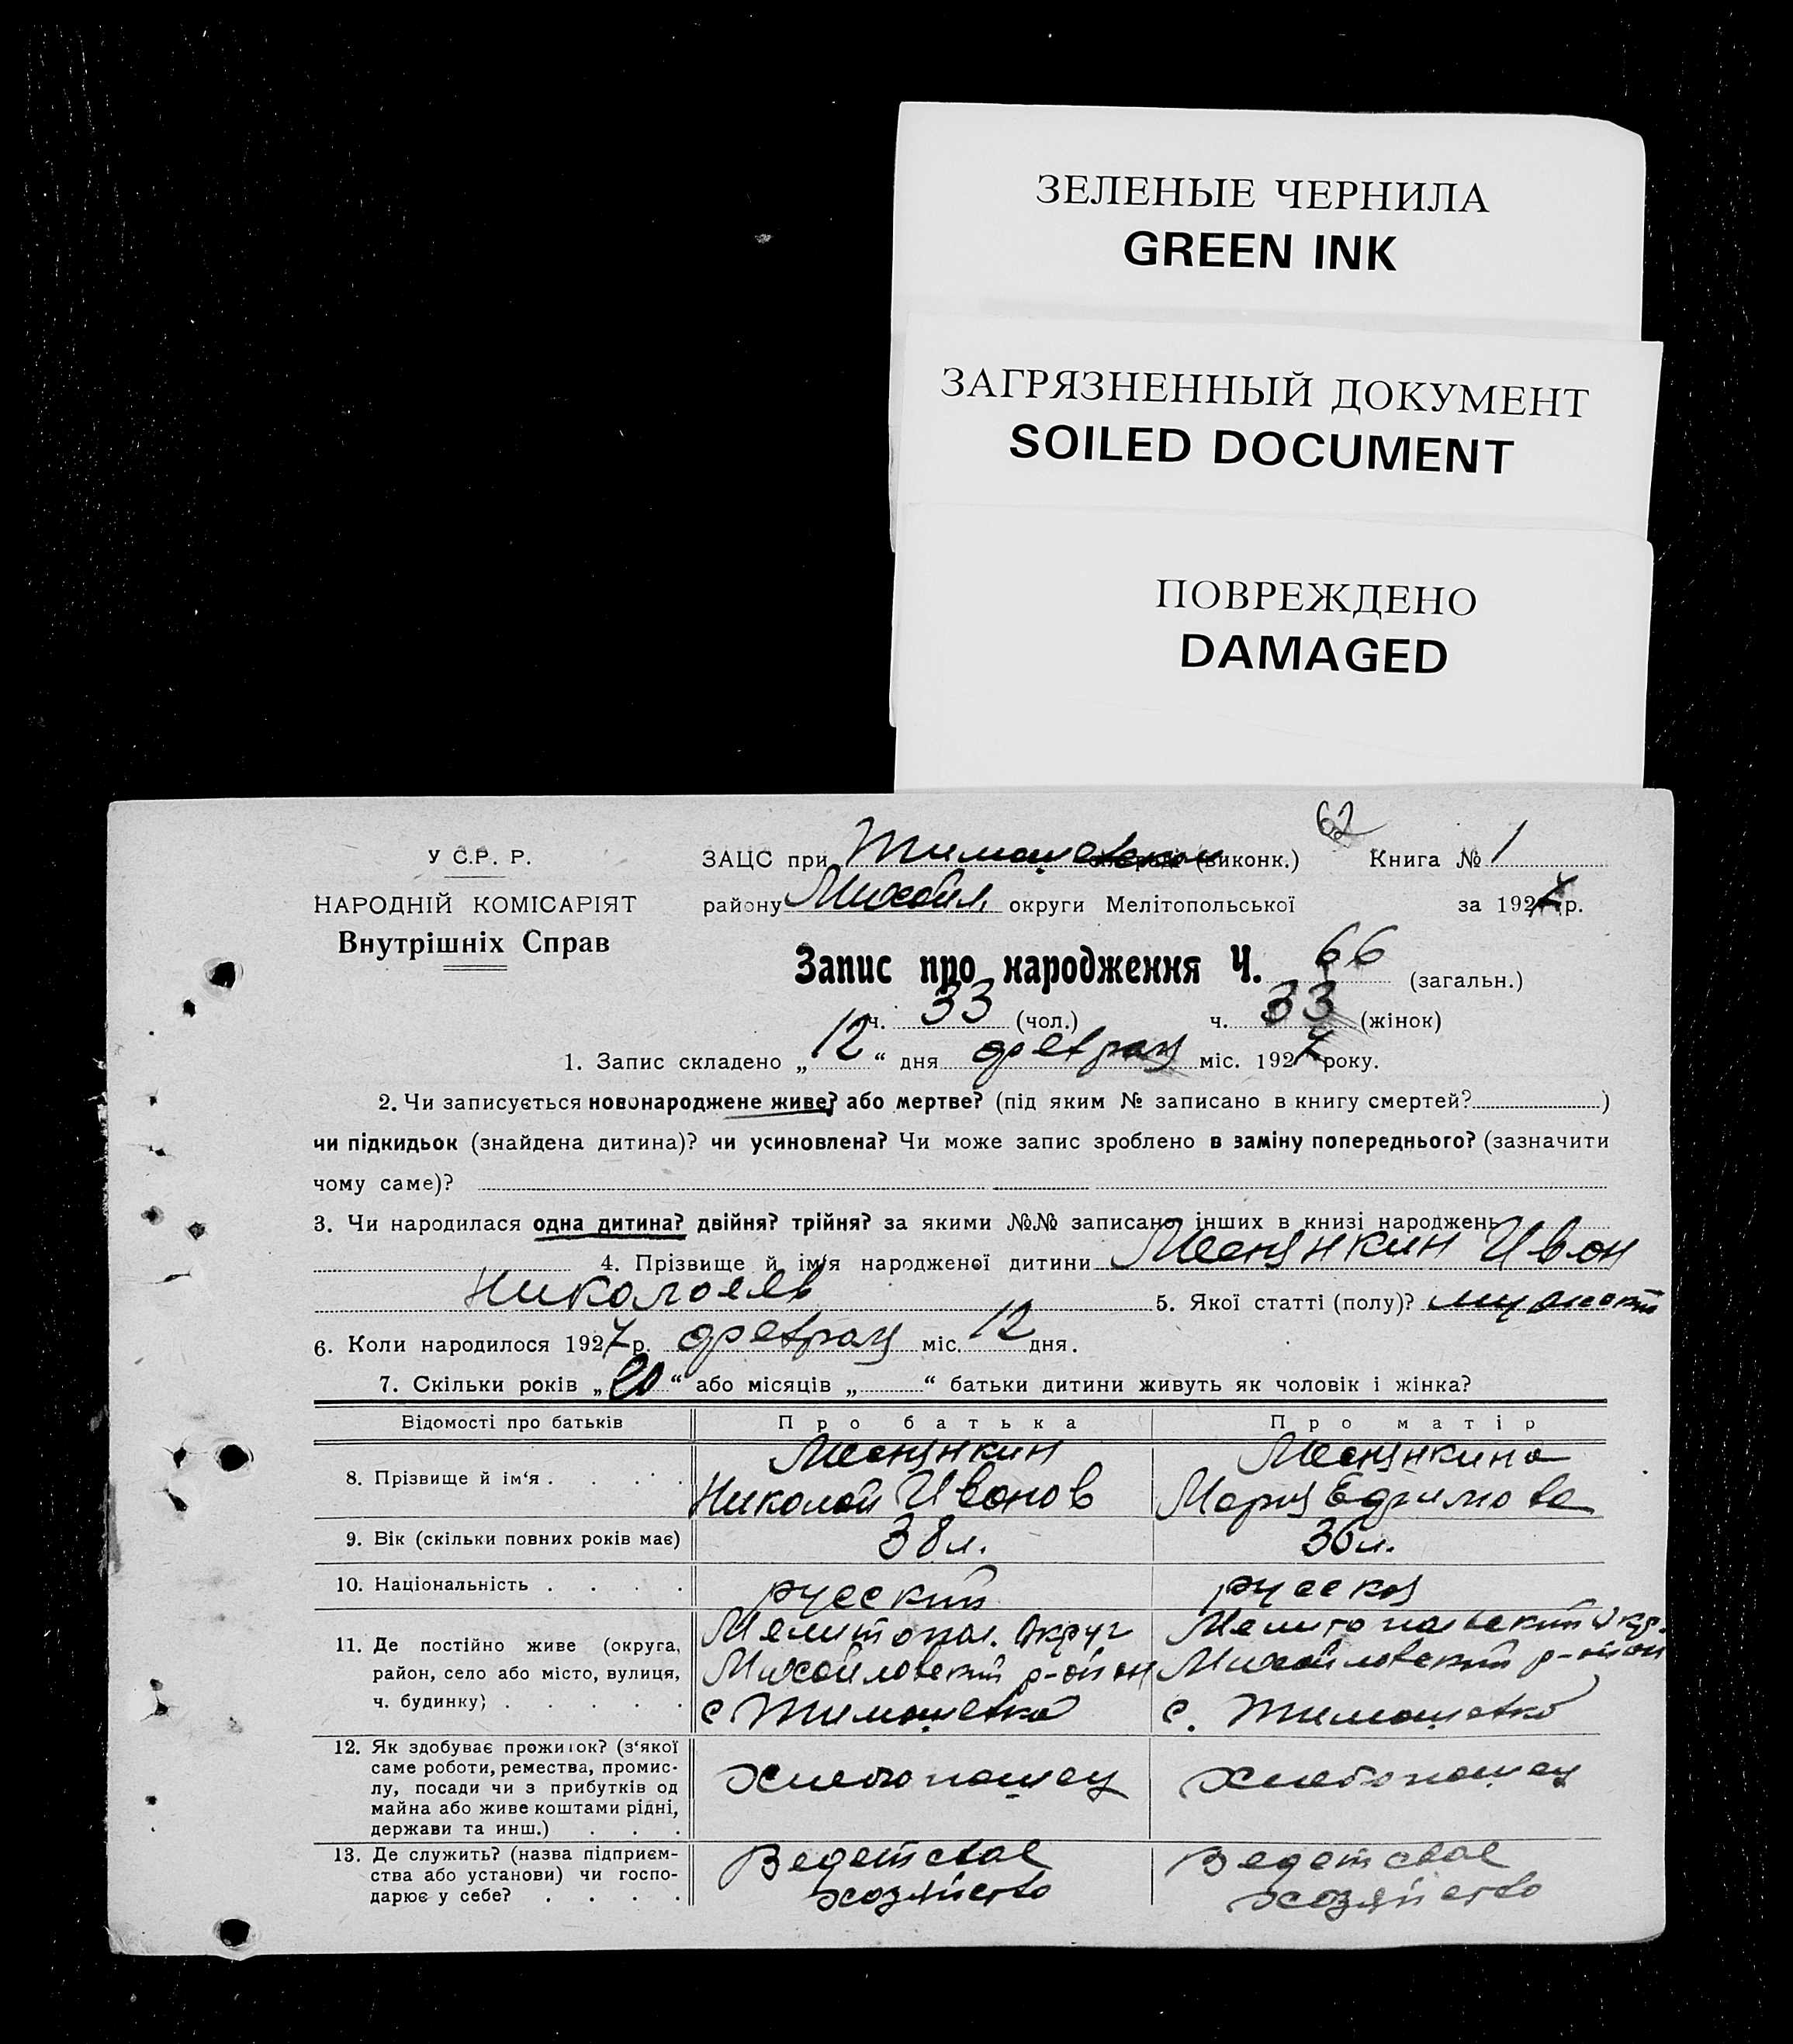 ЗЕЛЕНЫЕ ЧЕРНИЛА
GREEN INK
ЗАГРЯЗНЕННЫЙ ДОКУМЕНТ
SOILED DOCUMENT
ПОВРЕЖДЕНО
DAMAGED
62
У С.Р. Р.
ЗАЦС при Тимошевском (виконк.) Книга № 1
НАРОДНІЙ КОМІСАРІЯТ
району Михайл. округи Мелітопольської за 1927 р.
Внутрішніх Справ
Запис про народження Ч. 66 (загальн.)
ч. 33 (чол.) ч. 33 (жінок)
1. Запис складено „12“ дня февраля міс. 1927 року.
2. Чи записується новонароджене живе? або мертве? (під яким № записано в книгу смертей? )
чи підкидьок (знайдена дитина)? чи усиновлена? Чи може запис зроблено в заміну попереднього? (зазначити
чому саме)?
3. Чи народилася одна дитина? двійня? трійня? за якими №№ записано інших в книзі народжень
4. Прізвище й ім'я народженої дитини Масянкин Иван
Николаев 5. Якої статті (полу)? мужской
6. Коли народилося 1927 р. февраля міс. 12 дня.
7. Скільки років „20“ або місяців „ “ батьки дитини живуть як чоловік і жінка?
Відомості про батьків Про батька Про матір
8. Прізвище й ім'я . . . . Масянкин Николай Иванов Масянкина Мария Ефимова
9. Вік (скільки повних років має) 38 л. 36 л.
10. Національність . . . . русский русская
11. Де постійно живе (округа, Мелитопол. округ Мелитопольский окр.
район, село або місто, вулиця, Михайловский р-ойон Михайловский р-ойон
ч. будинку) . . . . . с Тимошевка с. Тимошевка
12. Як здобуває прожиток? (з'якої
саме роботи, ремества, промис-
лу, посади чи з прибутків од хлебопашец хлебопашец
майна або живе коштами рідні,
держави та инш.) . . .
13. Де служить? (назва підприєм- Ведет свое Ведет свое
ства або установи) чи госпо- хозяйство хозяйство
дарює у себе? . . . .